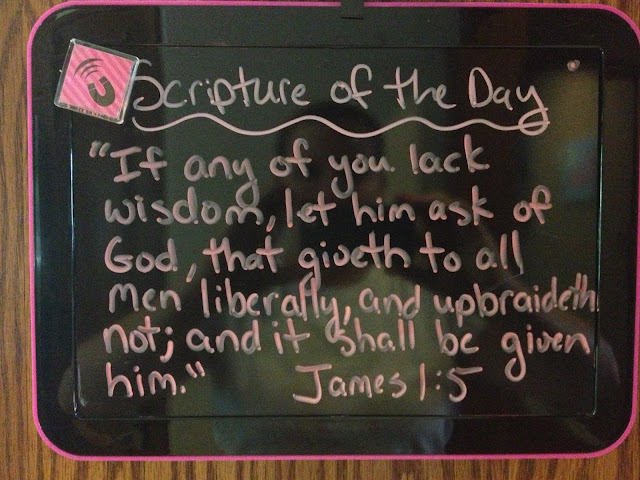 Scripture of the Day
"If any of you lack
wisdom, let him ask of
God, that giveth to all
men liberally, and upbraideth
not; and it shall be given
him." James 1:5